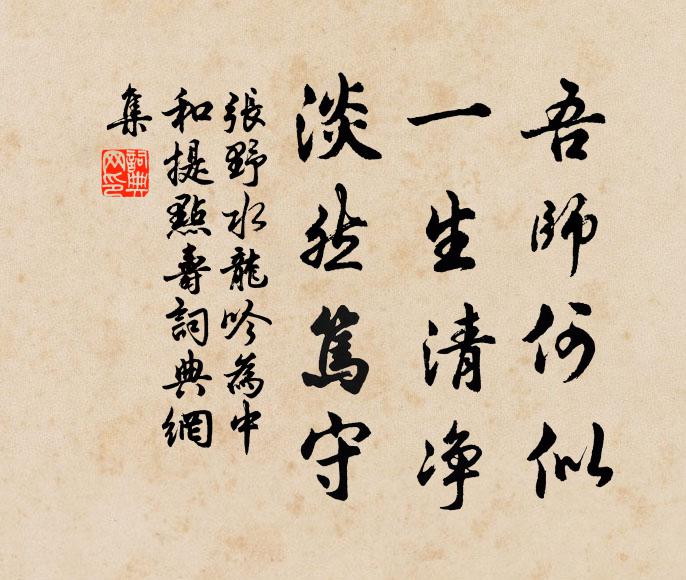 吾師何似
一生清净
淡然篤守
張野水龍吟為中
和提點壽詞典網
集
詞典网印